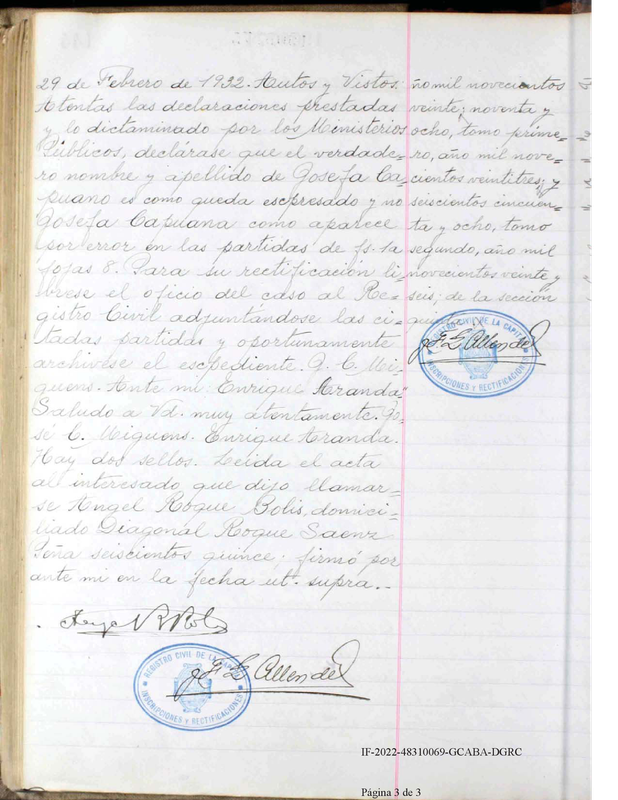 29 de Febrero de 1932. Autos y Vistos:
Atentas las declaraciones prestadas
y lo dictaminado por los Ministerios
Públicos, declárase que el verdade-
ro nombre y apellido de Josefa Ca-
puano es como queda escpresado y no
Josefa Capuana como aparece
por error en las partidas de fs. 1a
fojas 8. Para su rectificación li-
brese el oficio del caso al Re-
gistro Civil adjuntándose las ci-
tadas partidas y oportunamente
archivese el escpediente. J. C. Mi-
guens. Ante mi Enrique Aranda."
Saludo a Vd. muy atentamente. Jo-
sé C. Miguens. Enrique Aranda.
Hay dos sellos. Leida el acta
al interesado que dijo llamar-
se Angel Roque Bolis, domici-
liado Diagonal Roque Saenz
Peña seiscientos quince; firmó por
ante mi en la fecha ut. supra.-
REGISTRO CIVIL DE LA CAPITAL
INSCRIPCIONES Y RECTIFICACIONES
J. F. L. Allende
ño mil novecientos
veinte; noventa y
ocho, tomo prime-
ro, año mil nove-
cientos veintitres; y
seiscientos cincuen-
ta y ocho, tomo
segundo, año mil
novecientos veinte y
seis; de la sección
REGISTRO CIVIL DE LA CAPITAL
INSCRIPCIONES Y RECTIFICACIONES
J. F. L. Allende
IF-2022-48310069-GCABA-DGRC
Página 3 de 3